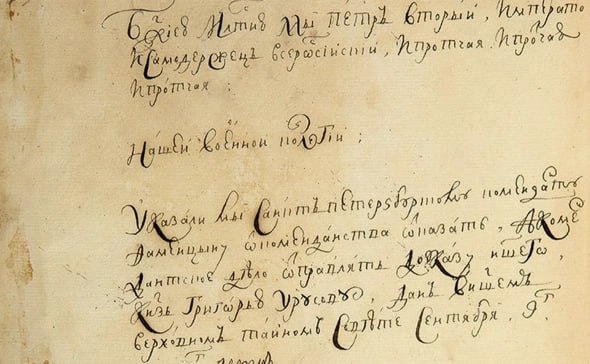 Бжиею Млтию Мы Петръ Вторый, Императо
И Самодержецъ всероσсiйскiй, И протчая И протчая
И протчая:
Нашей военной колегiи:
Указали мы Санктъ петерзбургскому коменданту
Фаминцыну ѿ комендантства ѿказать, А коме
дантское дѣло ѿправлять до указу ншего,
Кнзь Григорью Урусову, Данъ в ншемъ
верховномъ тайномъ Советѣ Сентября, 9г